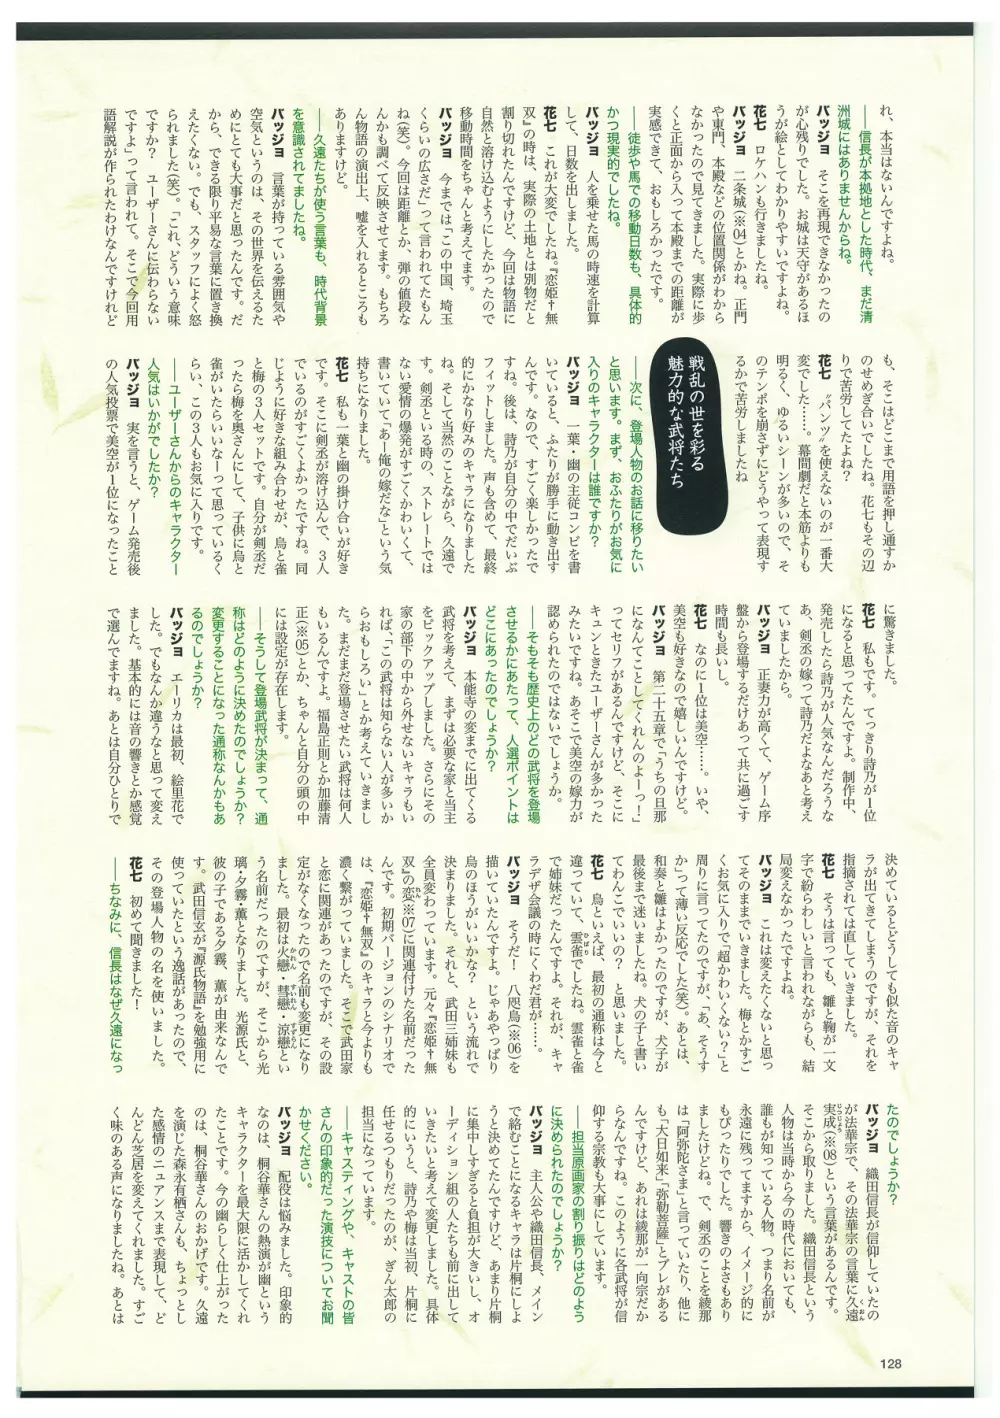 れ、本当はないんですよね。
――信長が本拠地とした時代、まだ清
洲城にはありませんからね。
バッジョ　そこを再現できなかったの
が心残りでした。お城は天守があるほ
うが絵としてわかりやすいですよね。
花七　ロケハンも行きましたね。
バッジョ　二条城（※04）とかね。正門
や東門、本殿などの位置関係がわから
なかったので見てきました。実際に歩
くと正面から入って本殿までの距離が
実感できて、おもしろかったです。
――徒歩や馬での移動日数も、具体的
かつ現実的でしたね。
バッジョ　人を乗せた馬の時速を計算
して、日数を出しました。
花七　これが大変でしたね。『恋姫†無
双』の時は、実際の土地とは別物だと
割り切れたんですけど、今回は物語に
自然と溶け込むようにしたかったので
移動時間をちゃんと考えてます。
バッジョ　今までは「この中国、埼玉
くらいの広さだ」って言われてたもん
ね（笑）。今回は距離とか、弾の値段な
んかも調べて反映させてます。もちろ
ん物語の演出上、嘘を入れるところも
ありますけど。
――久遠たちが使う言葉も、時代背景
を意識されてましたね。
バッジョ　言葉が持っている雰囲気や
空気というのは、その世界を伝えるた
めにとても大事だと思ったんです。だ
から、できる限り平易な言葉に置き換
えたくない。でも、スタッフによく怒
られました（笑）。「これ、どういう意味
ですか？　ユーザーさんに伝わらない
ですよ」って言われて。そこで今回用
語解説が作られたわけなんですけれど
も、そこはどこまで用語を押し通すか
のせめぎ合いでしたね。花七もその辺
りで苦労してたよね？
花七　〝パンツ〟を使えないのが一番大
変でした……。幕間劇だと本筋よりも
明るく、ゆるいシーンが多いので、そ
のテンポを崩さずにどうやって表現す
るかで苦労しましたね
戦乱の世を彩る
魅力的な武将たち
――次に、登場人物のお話に移りたい
と思います。まず、おふたりがお気に
入りのキャラクターは誰ですか？
バッジョ　一葉・幽の主従コンビを書
いていると、ふたりが勝手に動き出す
んです。なので、すごく楽しかったで
すね。後は、詩乃が自分の中でだいぶ
フィットしました。声も含めて、最終
的にかなり好みのキャラになりました
ね。そして当然のことながら、久遠で
す。剣丞といる時の、ストレートでは
ない愛情の爆発がすごくかわいくて、
書いていて「あー俺の嫁だな」という気
持ちになりました。
花七　私も一葉と幽の掛け合いが好き
です。そこに剣丞が溶け込んで、３人
でいるのがすごくよかったですね。同
じように好きな組み合わせが、烏と雀
と梅の３人セットです。自分が剣丞だ
ったら梅を奥さんにして、子供に烏と
雀がいたらいいなーって思っているく
らい、この３人もお気に入りです。
――ユーザーさんからのキャラクター
人気はいかがでしたか？
バッジョ　実を言うと、ゲーム発売後
の人気投票で美空が１位になったこと
に驚きました。
花七　私もです。てっきり詩乃が１位
になると思ってたんですよ。制作中、
発売したら詩乃が人気なんだろうな
あ、剣丞の嫁って詩乃だよなあと考え
ていましたから。
バッジョ　正妻力が高くて、ゲーム序
盤から登場するだけあって共に過ごす
時間も長いし。
花七　なのに１位は美空……。いや、
美空も好きなので嬉しいんですけど。
バッジョ　第二十五章で「うちの旦那
になんてことしてくれんのよーっ！」
ってセリフがあるんですけど、そこに
キュンときたユーザーさんが多かった
みたいですね。あそこで美空の嫁力が
認められたのではないでしょうか。
――そもそも歴史上のどの武将を登場
させるかにあたって、人選ポイントは
どこにあったのでしょうか？
バッジョ　本能寺の変までに出てくる
武将を考えて、まずは必要な家と当主
をピックアップしました。さらにその
家の部下の中から外せないキャラもい
れば「この武将は知らない人が多いか
らおもしろい」とか考えていきまし
た。まだまだ登場させたい武将は何人
もいるんですよ。福島正則とか加藤清
正（※05）とか、ちゃんと自分の頭の中
には設定が存在します。
――そうして登場武将が決まって、通
称はどのように決めたのでしょうか？
変更することになった通称なんかもあ
るのでしょうか？
バッジョ　エーリカは最初、絵里花で
した。でもなんか違うなと思って変え
ました。基本的には音の響きとか感覚
で選んでますね。あとは自分ひとりで
決めているとどうしても似た音のキャ
ラが出てきてしまうのですが、それを
指摘されては直していきました。
花七　そうは言っても、雛と鞠が一文
字で紛らわしいと言われながらも、結
局変えなかったですよね。
バッジョ　これは変えたくないと思っ
てそのままでいきました。梅とかすご
くお気に入りで「超かわいくない？」と
周りに言ってたのですが、「あ、そうす
か」って薄い反応でした（笑）。あとは、
和奏と雛はよかったのですが、犬子が
最後まで迷いましたね。犬の子と書い
てわんこでいいの？　と思いました。
花七　烏といえば、最初の通称は今と
違っていて、雲雀でしたね。雲雀と雀
で姉妹だったんですよ。それが、キャ
ラデザ会議の時にくわだ君が……。
バッジョ　そうだ！　八咫烏（※06）を
描いていたんですよ。じゃあやっぱり
烏のほうがいいかな？　という流れで
決まりました。それと、武田三姉妹も
全員変わっています。元々『恋姫†無
双』の恋（※07）に関連付けた名前だった
んです。初期バージョンのシナリオで
は、『恋姫†無双』のキャラと今よりも
濃く繋がっていました。そこで武田家
と恋に関連があったのですが、その設
定がなくなったので名前も変更になり
ました。最初は火戀・彗戀・涼戀とい
う名前だったのですが、そこから光
璃・夕霧・薫となりました。光源氏と、
彼の子である夕霧、薫が由来なんで
す。武田信玄が『源氏物語』を勉強用に
使っていたという逸話があったので、
その登場人物の名を使いました。
花七　初めて聞きました！
――ちなみに、信長はなぜ久遠になっ
たのでしょうか？
バッジョ　織田信長が信仰していたの
が法華宗で、その法華宗の言葉に久遠
実成（※08）という言葉があるんです。
そこから取りました。織田信長という
人物は当時から今の時代においても、
誰もが知っている人物。つまり名前が
永遠に残ってますから、イメージ的に
もぴったりでした。響きのよさもあり
ましたけどね。で、剣丞のことを綾那
は「阿弥陀さま」と言っていたり、他に
も「大日如来」「弥勒菩薩」とブレがある
んですけど、あれは綾那が一向宗だか
らなんですね。このように各武将が信
仰する宗教も大事にしています。
――担当原画家の割り振りはどのよう
に決められたのでしょうか？
バッジョ　主人公や織田信長、メイン
で絡むことになるキャラは片桐にしよ
うと決めてたんですけど、あまり片桐
に集中しすぎると負担が大きいし、オ
ーディション組の人たちも前に出して
いきたいと考えて変更しました。具体
的にいうと、詩乃や梅は当初、片桐に
任せるつもりだったのが、ぎん太郎の
担当になっています。
――キャスティングや、キャストの皆
さんの印象的だった演技についてお聞
かせください。
バッジョ　配役は悩みました。印象的
なのは、桐谷華さんの熱演が幽という
キャラクターを最大限に活かしてくれ
たことです。今の幽らしく仕上がった
のは、桐谷華さんのおかげです。久遠
を演じた森永有栖さんも、ちょっとし
た感情のニュアンスまで表現して、ど
んどん芝居を変えてくれました。すご
く味のある声になりましたね。あとは
128